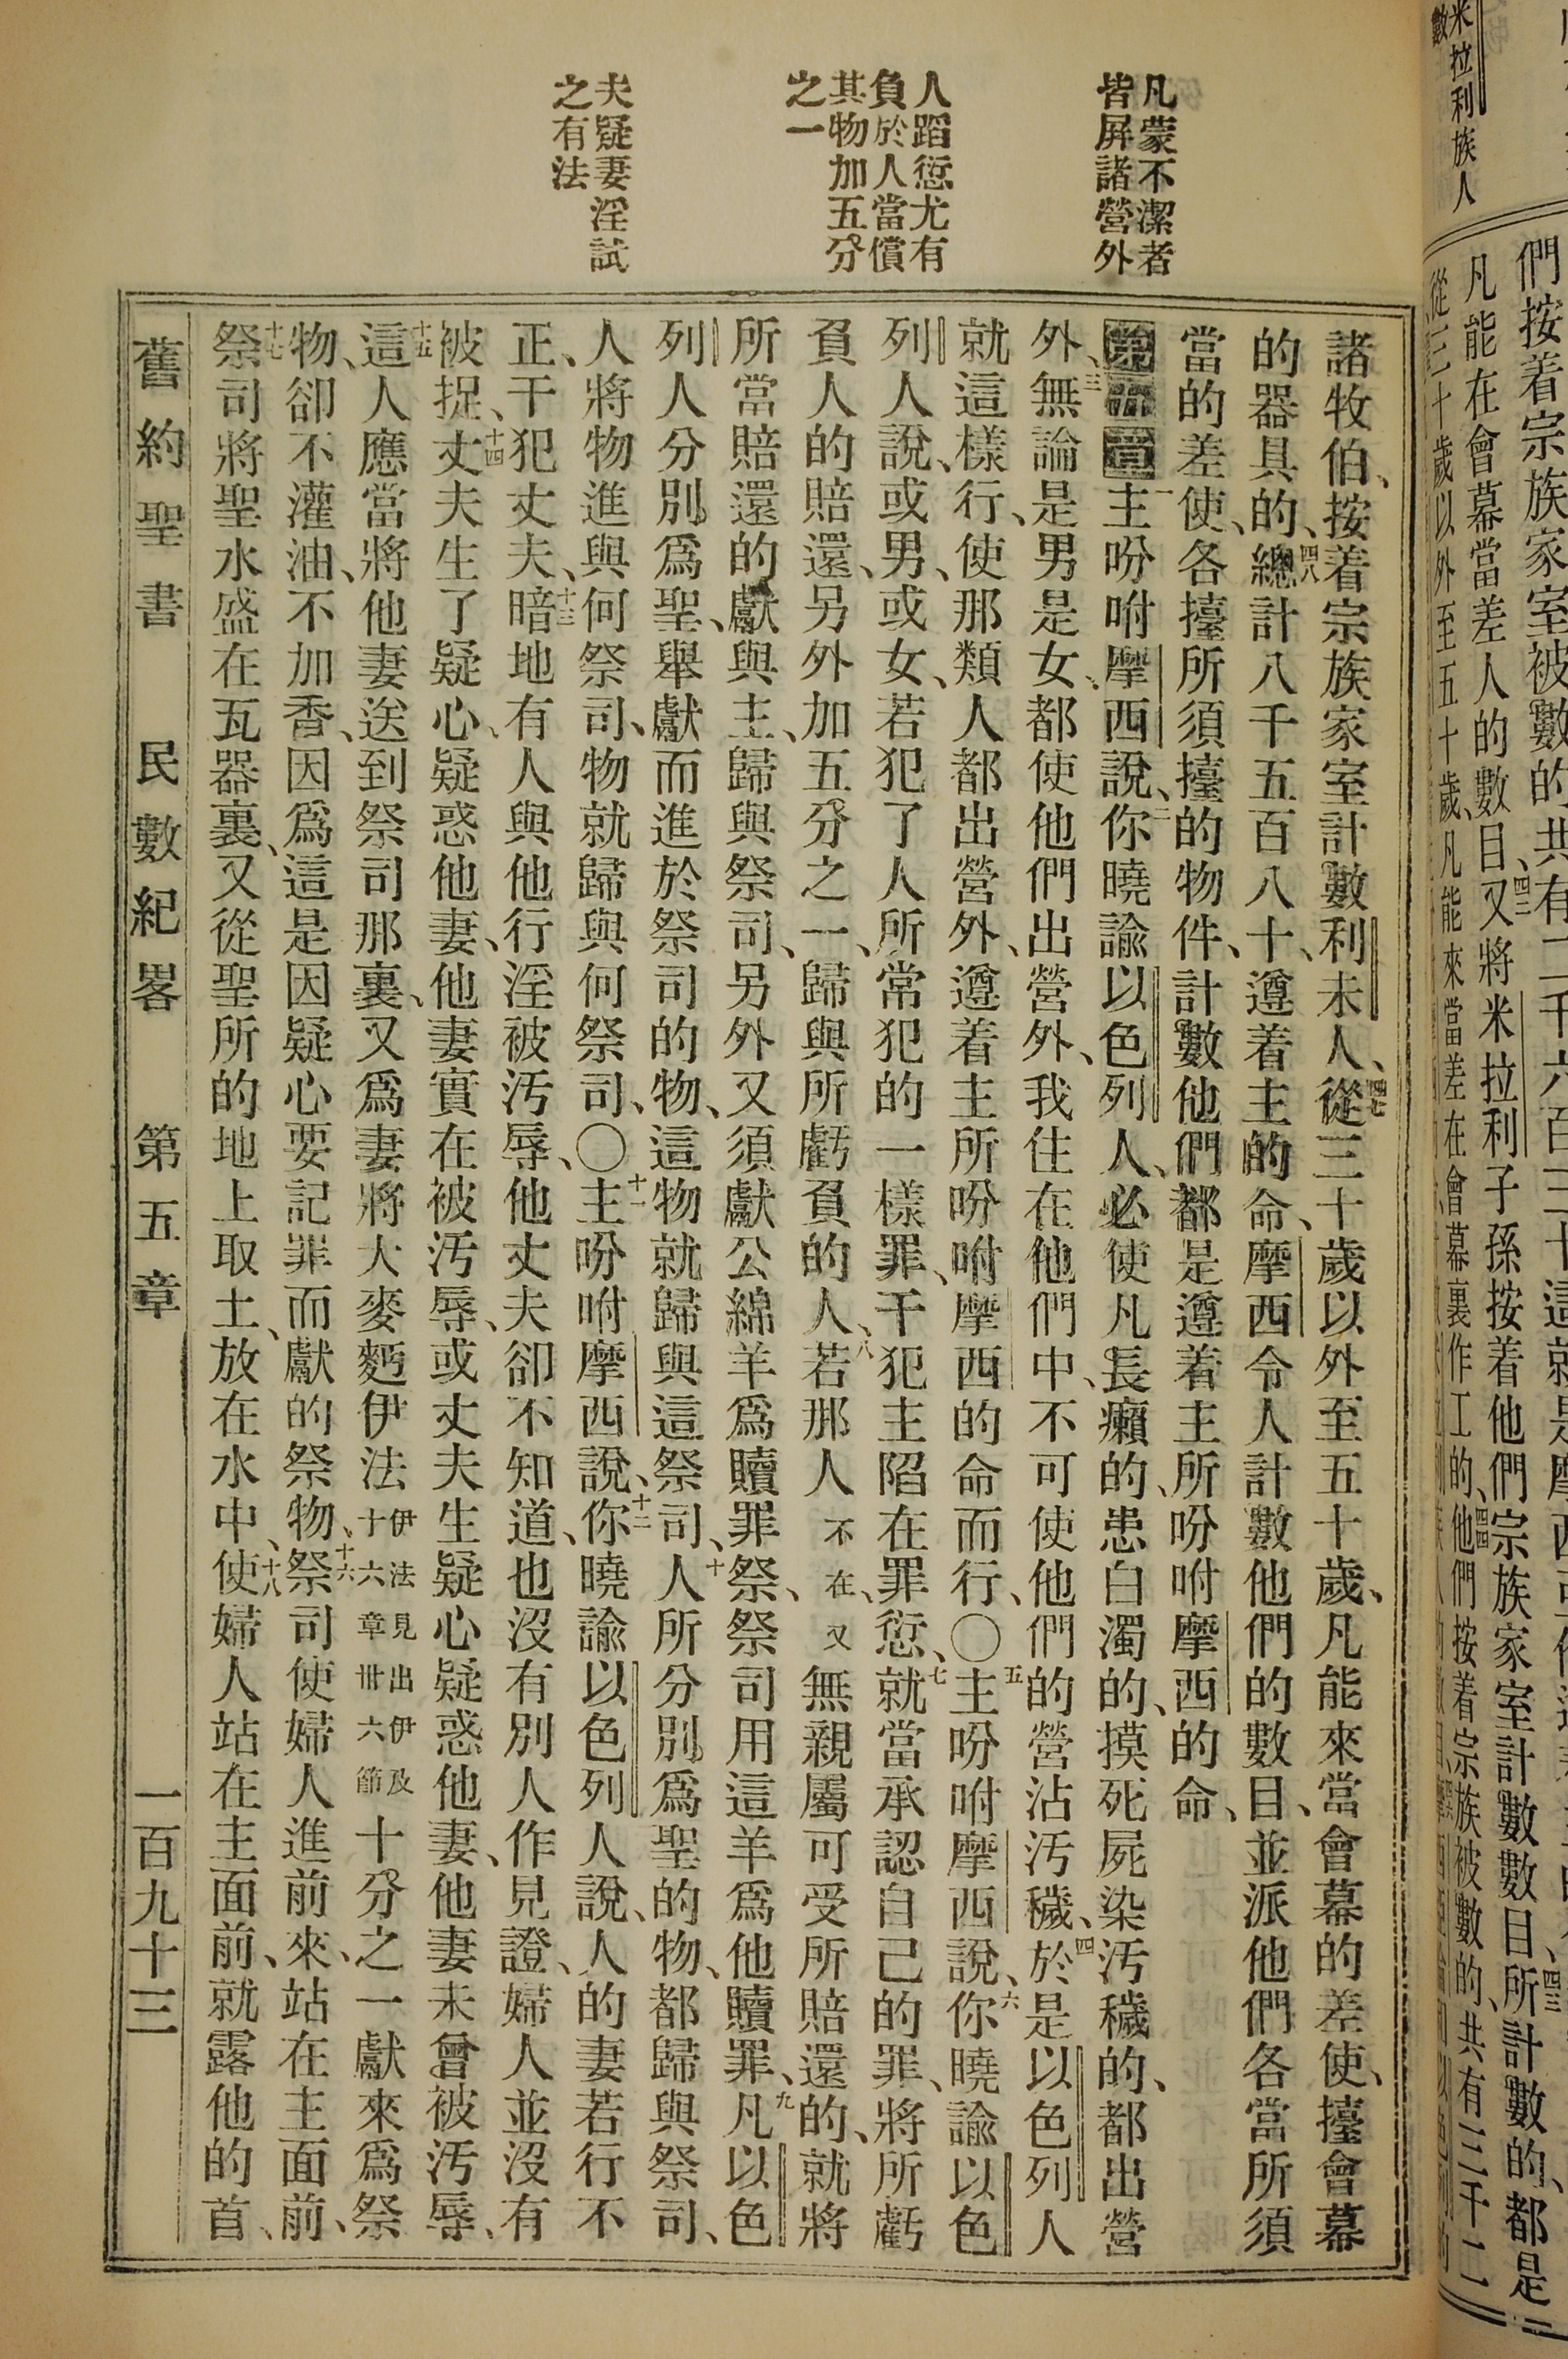 凡蒙不潔者
皆屏諸營外
人蹈愆尤有
負於人當償
其物加五分
之一
夫疑妻淫試
之有法
諸牧伯、按着宗族家室計數利未人、四七從三十歲以外至五十歲、凡能來當會幕的差使、擡會幕
的器具的、四八總計八千五百八十、遵着主的命、摩西令人計數他們的數目、並派他們各當所須
當的差使、各擡所須擡的物件、計數他們都是遵着主所吩咐摩西的命、
第五章一主吩咐摩西說、二你曉諭以色列人、必使凡長癩的、患白濁的、摸死屍染汚穢的、都出營
外、三無論是男是女、都使他們出營外、我住在他們中、不可使他們的營沾汚穢、四於是以色列人
就這樣行、使那類人都出營外、遵着主所吩咐摩西的命而行、〇五主吩咐摩西說、六你曉諭以色
列人說、或男、或女、若犯了人所常犯的一樣罪、干犯主陷在罪愆、七就當承認自己的罪、將所虧
負人的賠還、另外加五分之一、歸與所虧負的人、八若那人不在又無親屬可受所賠還的、就將
所當賠還的獻與主、歸與祭司、另外又須獻公綿羊爲贖罪祭、祭司用這羊爲他贖罪、九凡以色
列人分別爲聖、舉獻而進於祭司的物、這物就歸與這祭司、十人所分別爲聖的物、都歸與祭司、
人將物進與何祭司、物就歸與何祭司、〇十一主吩咐摩西說、十二你曉諭以色列人說、人的妻若行不
正、干犯丈夫、十三暗地有人與他行淫被汚辱、他丈夫卻不知道、也沒有別人作見證、婦人並沒有
被捉、十四丈夫生了疑心、疑惑他妻、他妻實在被汚辱、或丈夫生疑心疑惑他妻、他妻未曾被汚辱、
十五這人應當將他妻送到祭司那裏、又爲妻將大麥麪伊法伊法見出伊及十六章卅六節十分之一獻來爲祭
物、卻不灌油、不加香、因爲這是因疑心要記罪而獻的祭物、十六祭司使婦人進前來、站在主面前、
十七祭司將聖水盛在瓦器裏、又從聖所的地上取土、放在水中、十八使婦人站在主面前、就露他的首、
舊約聖書 民數紀畧 第五章 一百九十三